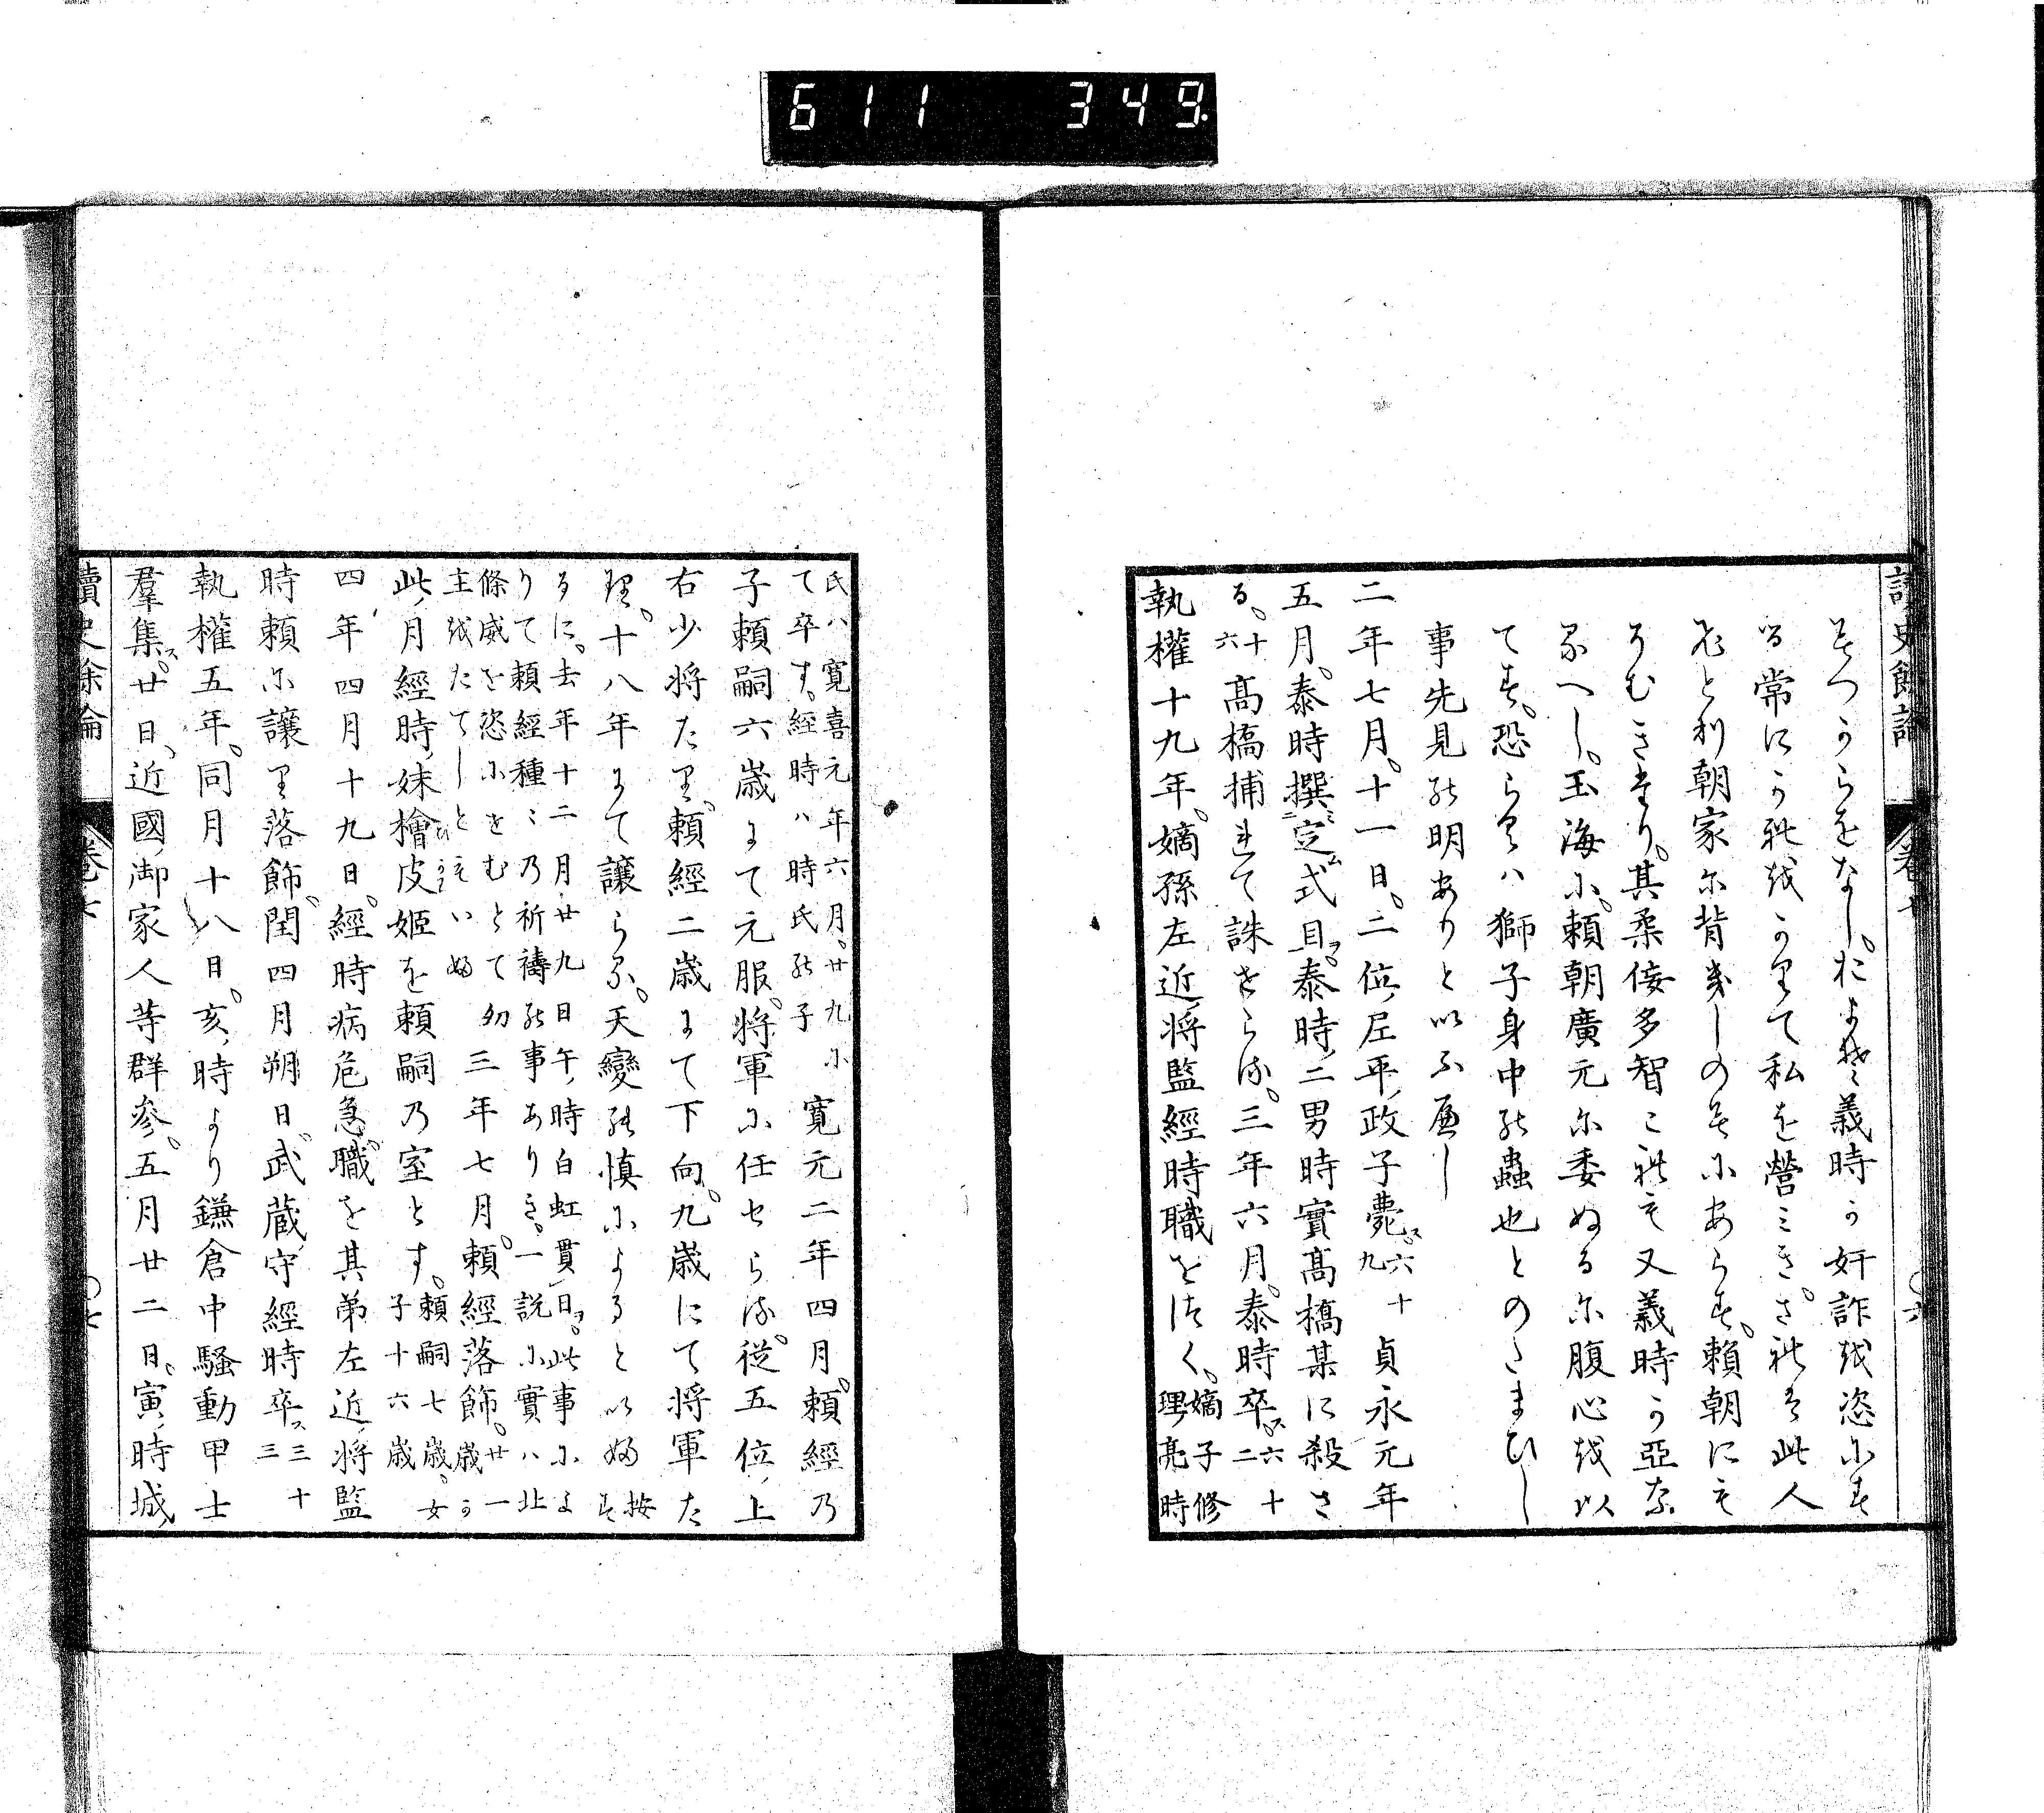 611 349
讀史餘論 卷七 〇六
そつからをなし。おょそ義時か奸詐越恣にす
る常に只私を營ミき。されは此人
朝家に背きしのミにあらす。頼朝にも
そむきたり。其柔佞多智これも又義時か亞な
るへし。玉海に。頼朝廣元に委ぬるに腹心を以
てす。恐らくハ獅子身中の蟲也とのたまひし
事先見の明ありといふへし
二年七月。十一日。二位尼平政子薨ス。六十九 貞永元年
五月。泰時撰ニ定ム式目一ヲ。泰時二男時實髙橋某に殺さ
る。十六 髙橋捕れて誅せらる。三年六月。泰時卒ス。六十二
執權十九年。嫡孫左近將監經時職をつく。嫡子修理亮時
氏ハ寛喜元年六月。廿九にて卒す。經時ハ時氏の子 寛元二年四月。頼經の
子頼嗣六歳にて元服。將軍に任せらる。從五位上
右少將たり。頼經二歳にて下向。九歳にて將軍た
り。十八年にて讓らる。天變の慎によるといふ 按す
るに。去年十二月廿九日午時白虹貫日ヲ。此事によ
りて頼經種々の祈禱の事ありき。一説に實ハ北
條威を恣にせむとて幼主をたてしともいふ 三年七月。頼經落飾。廿一歳か
此月經時妹檜皮姫を頼嗣の室とす。頼嗣七歳。女子十六歳
四年四月十九日。經時病危急。職を其弟左近將監
時頼に讓り落飾。閏四月朔日。武藏守經時卒ス 三十三
執權五年。同月十八日。亥時より鎌倉中騷動甲士
羣集ス。廿日。近國御家人等群參。五月廿二日。寅時城
讀史餘論 卷七 〇七